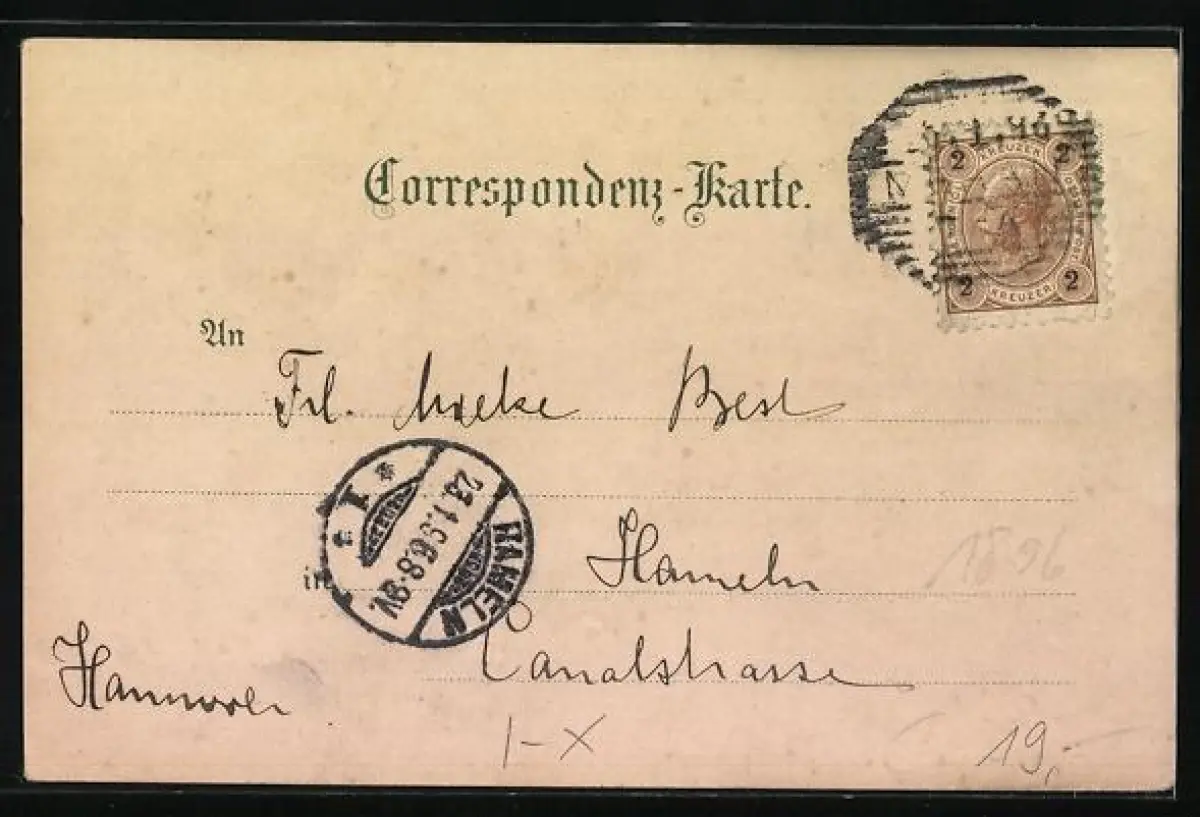 Correspondenz-Karte.
2 KREUZER 2
2 KREUZER 2
An
Frl. Best
HAMELN
23.1.96.8-9V.
* I *
in Hameln
1896
Canalstrasse
Hannover
I-X
19,-